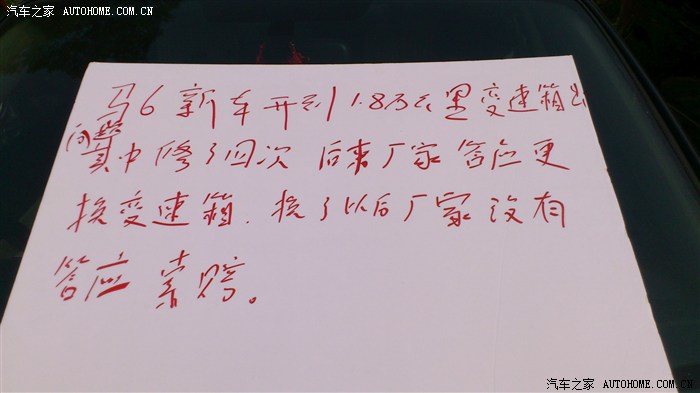 汽车之家 AUTOHOME.COM.CN
马6 新车开到1.8万公里变速箱出
问题 其中修了四次 后来厂家答应更
换变速箱. 换了以后厂家没有
答应索赔。
汽车之家 AUTOHOME.COM.CN